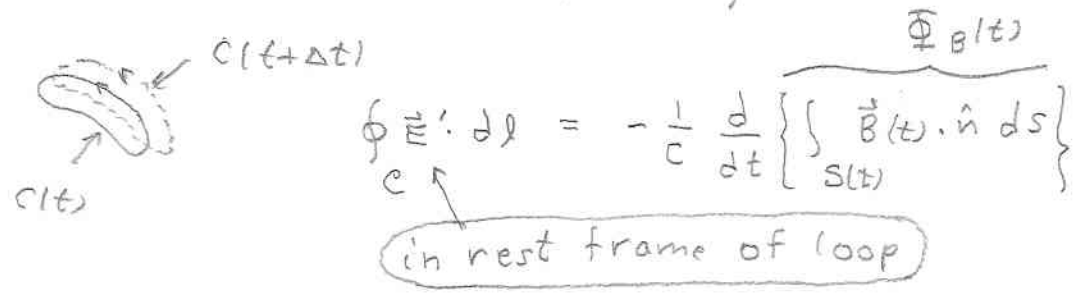 C(t+Δt)
Φ_B(t)
∮_C E⃗'· dl = - 1/c d/dt { ∫_S(t) B⃗(t) · n̂ dS }
C(t)
in rest frame of loop